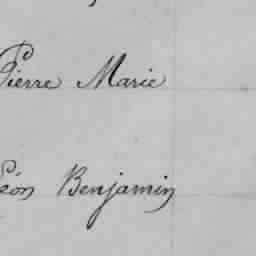 Pierre Marie
Léon Benjamin